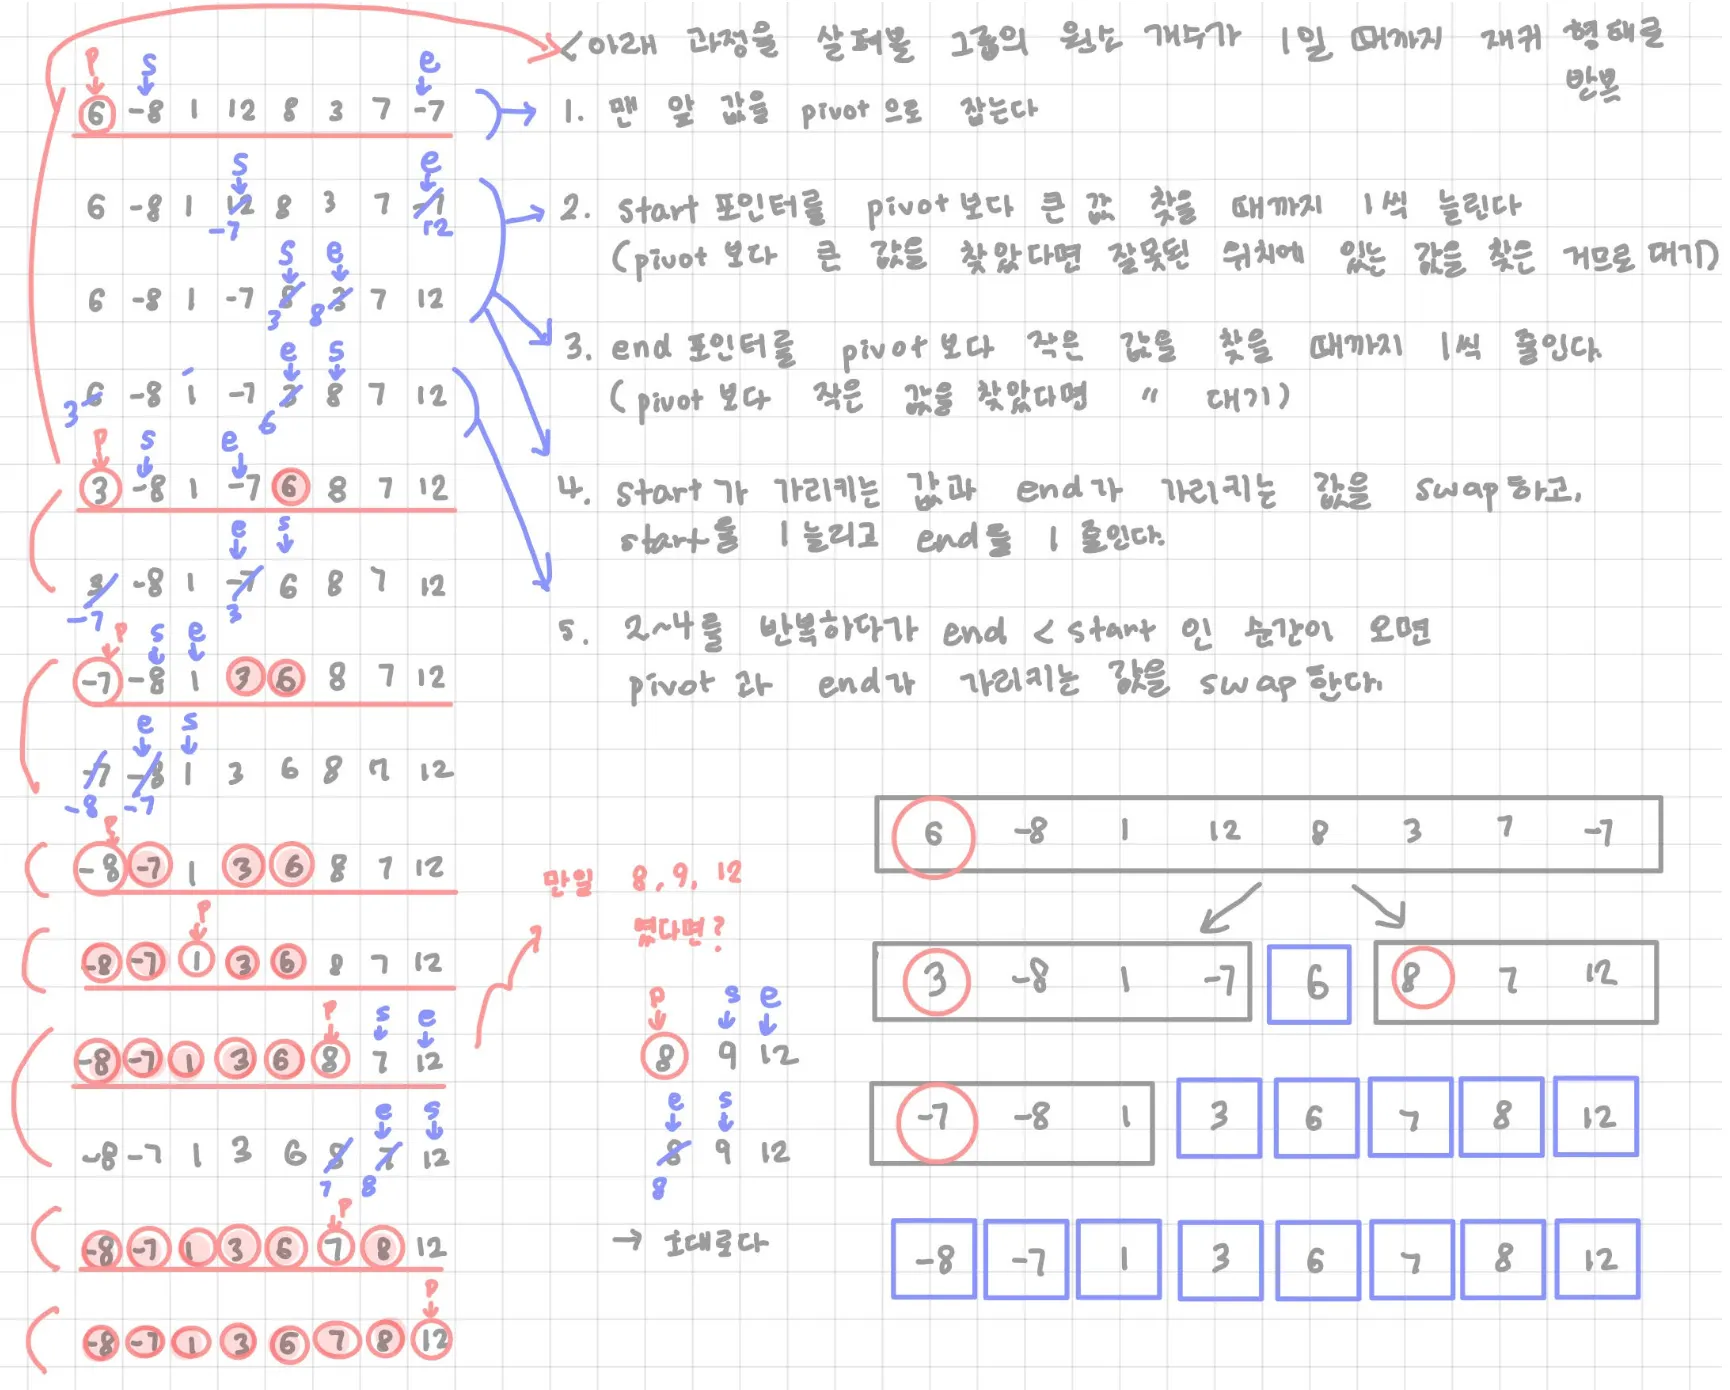 <아래 과정을 살펴볼 그룹의 원소 개수가 1일 때까지 재귀 형태로
반복
P s e
6 -8 1 12 8 3 7 -7
1. 맨 앞 값을 pivot으로 잡는다
s e
6 -8 1 12 8 3 7 -7
-7 12
2. start 포인터를 pivot보다 큰 값 찾을 때까지 1씩 늘린다
(pivot보다 큰 값을 찾았다면 잘못된 위치에 있는 값을 찾은 거므로 대기)
s e
6 -8 1 -7 8 3 7 12
3 8
3. end 포인터를 pivot보다 작은 값을 찾을 때까지 1씩 줄인다.
(pivot보다 작은 값을 찾았다면 " 대기)
e s
6 -8 1 -7 3 8 7 12
3 6
P s e
3 -8 1 -7 6 8 7 12
4. start가 가리키는 값과 end가 가리키는 값을 swap하고,
start를 1 늘리고 end를 1 줄인다.
e s
3 -8 1 -7 6 8 7 12
-7 3
5. 2~4를 반복하다가 end < start 인 순간이 오면
pivot과 end가 가리키는 값을 swap한다.
P s e
-7 -8 1 3 6 8 7 12
e s
-7 -8 1 3 6 8 7 12
-8 -7
P
-8 -7 1 3 6 8 7 12
P
-8 -7 1 3 6 8 7 12
P s e
-8 -7 1 3 6 8 7 12
e s
-8 -7 1 3 6 8 7 12
7 8
P
-8 -7 1 3 6 7 8 12
P
-8 -7 1 3 6 7 8 12
만일 8, 9, 12
였다면?
P s e
8 9 12
e s
8 9 12
8
→ 그대로다
6 -8 1 12 8 3 7 -7
3 -8 1 -7 6 8 7 12
-7 -8 1 3 6 7 8 12
-8 -7 1 3 6 7 8 12